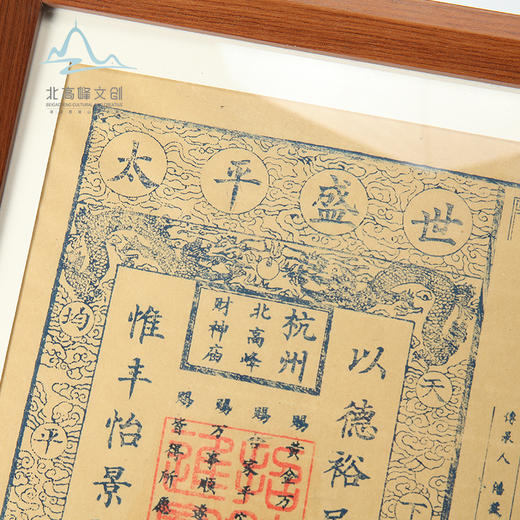 北高峰文创
BEIGAOFENG CULTURAL AND CREATIVE
太平盛世
天下
以德裕
杭州
北高峰
财神庙
赐 黄金万
赐 合家平
赐 万事顺意
赐 皆得所愿
惟丰怡景
均平
傳承人 潘